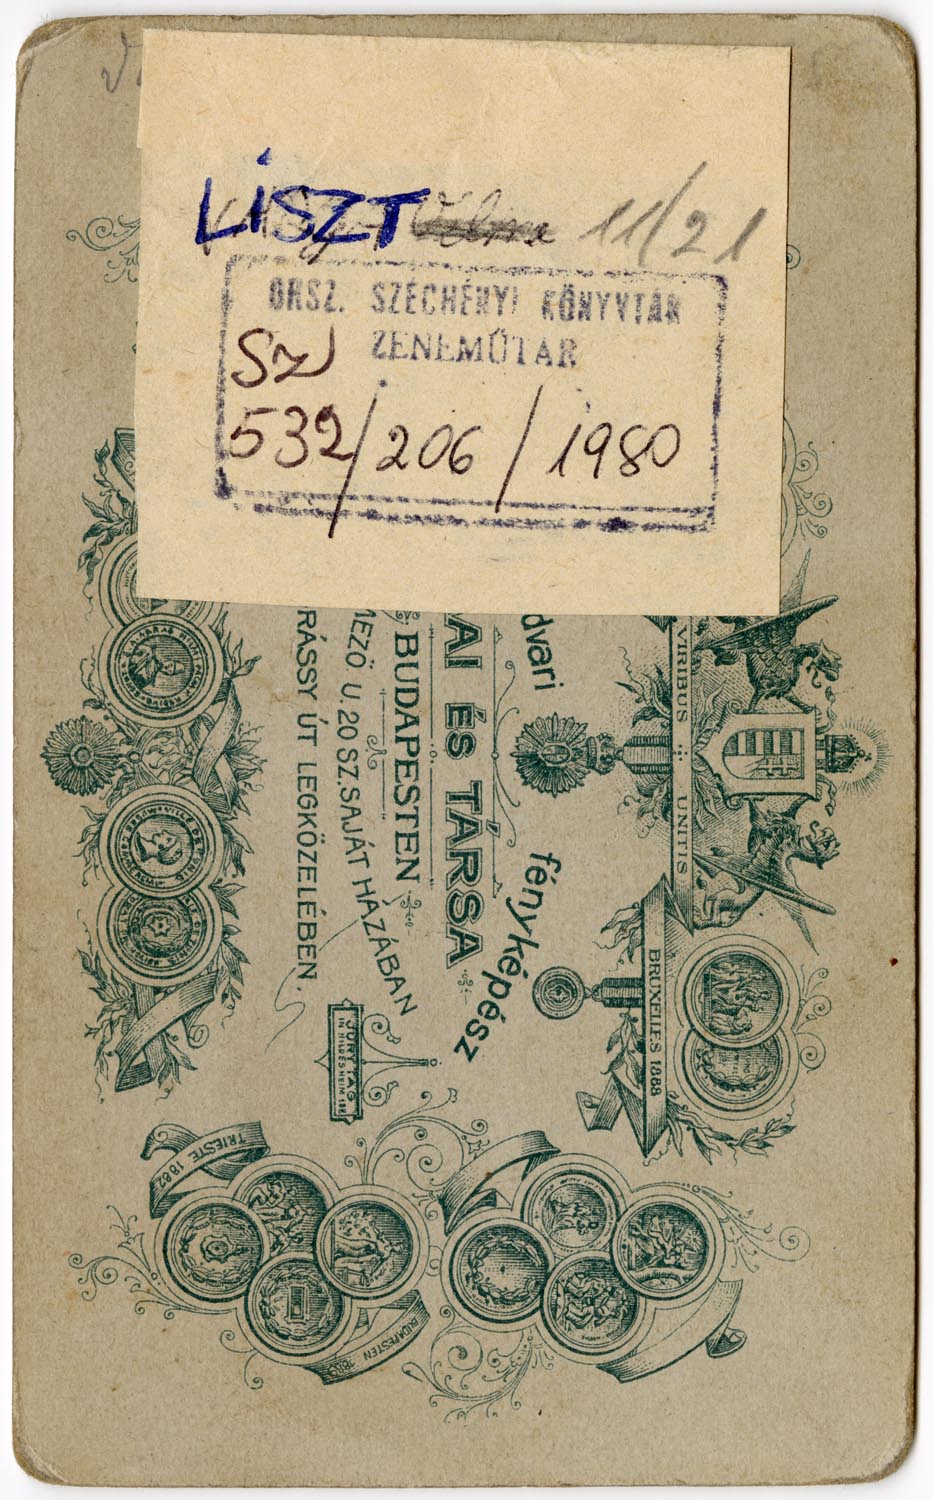 LISZT Vilma 11/21
ORSZ. SZÉCHÉNYI KÖNYVTÁR
ZENEMŰTÁR
SZ
532/206/1980
dvari fényképész
AI ÉS TÁRSA
BUDAPESTEN
MEZÖ U. 20 SZ. SAJÁT HÁZÁBAN
RÁSSY ÚT LEGKÖZELÉBEN.
VIRIBUS UNITIS
BRUXELLES 1888
JURYTAG
IN HILDESHEIM 188
TRIESTE 1882
BUDAPESTEN